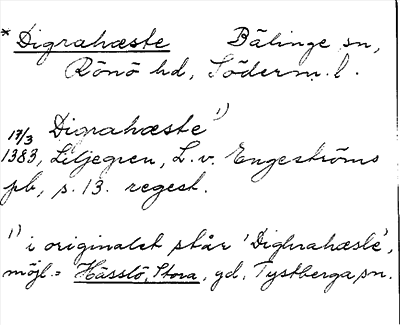 *Digrahæste Bälinge sn,
Rönö hd, Söderm. l.
Digrahæste 1)
17/3
1383, Liljegren, L. v. Engeströms
pb, s. 13. regest.
1) i originalet står 'Dighrahæsle',
möjl. = Hässlö, Stora, gd, Tystberga sn.